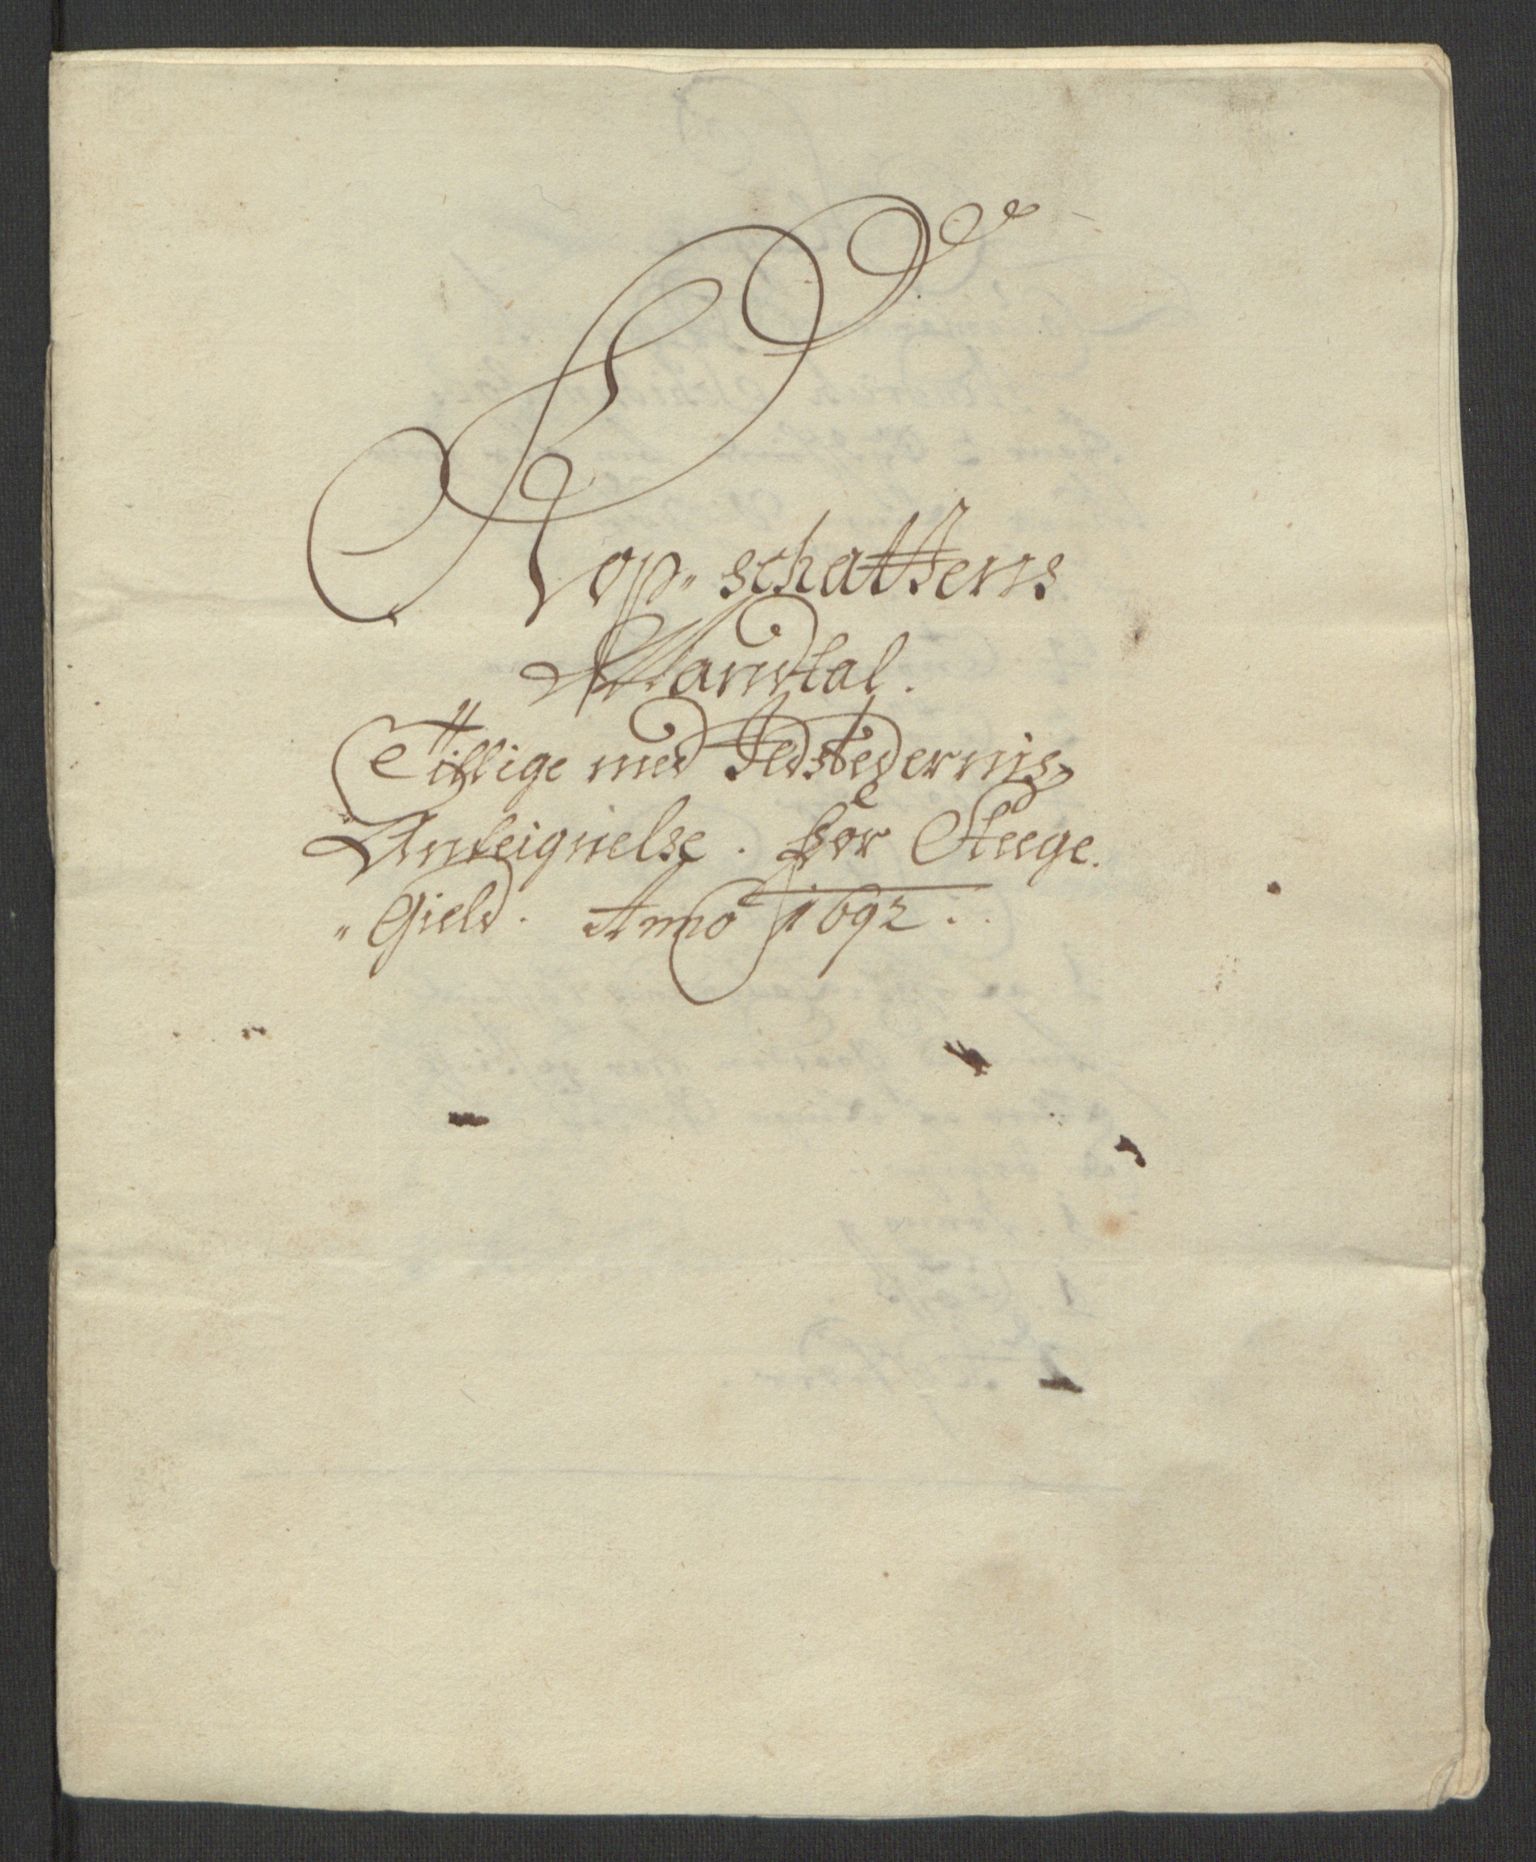 Kop-schattens
Mandtal.
Tillige med Ildstedernis
Anteignelse. for Steege.
Gield. Anno 1692.